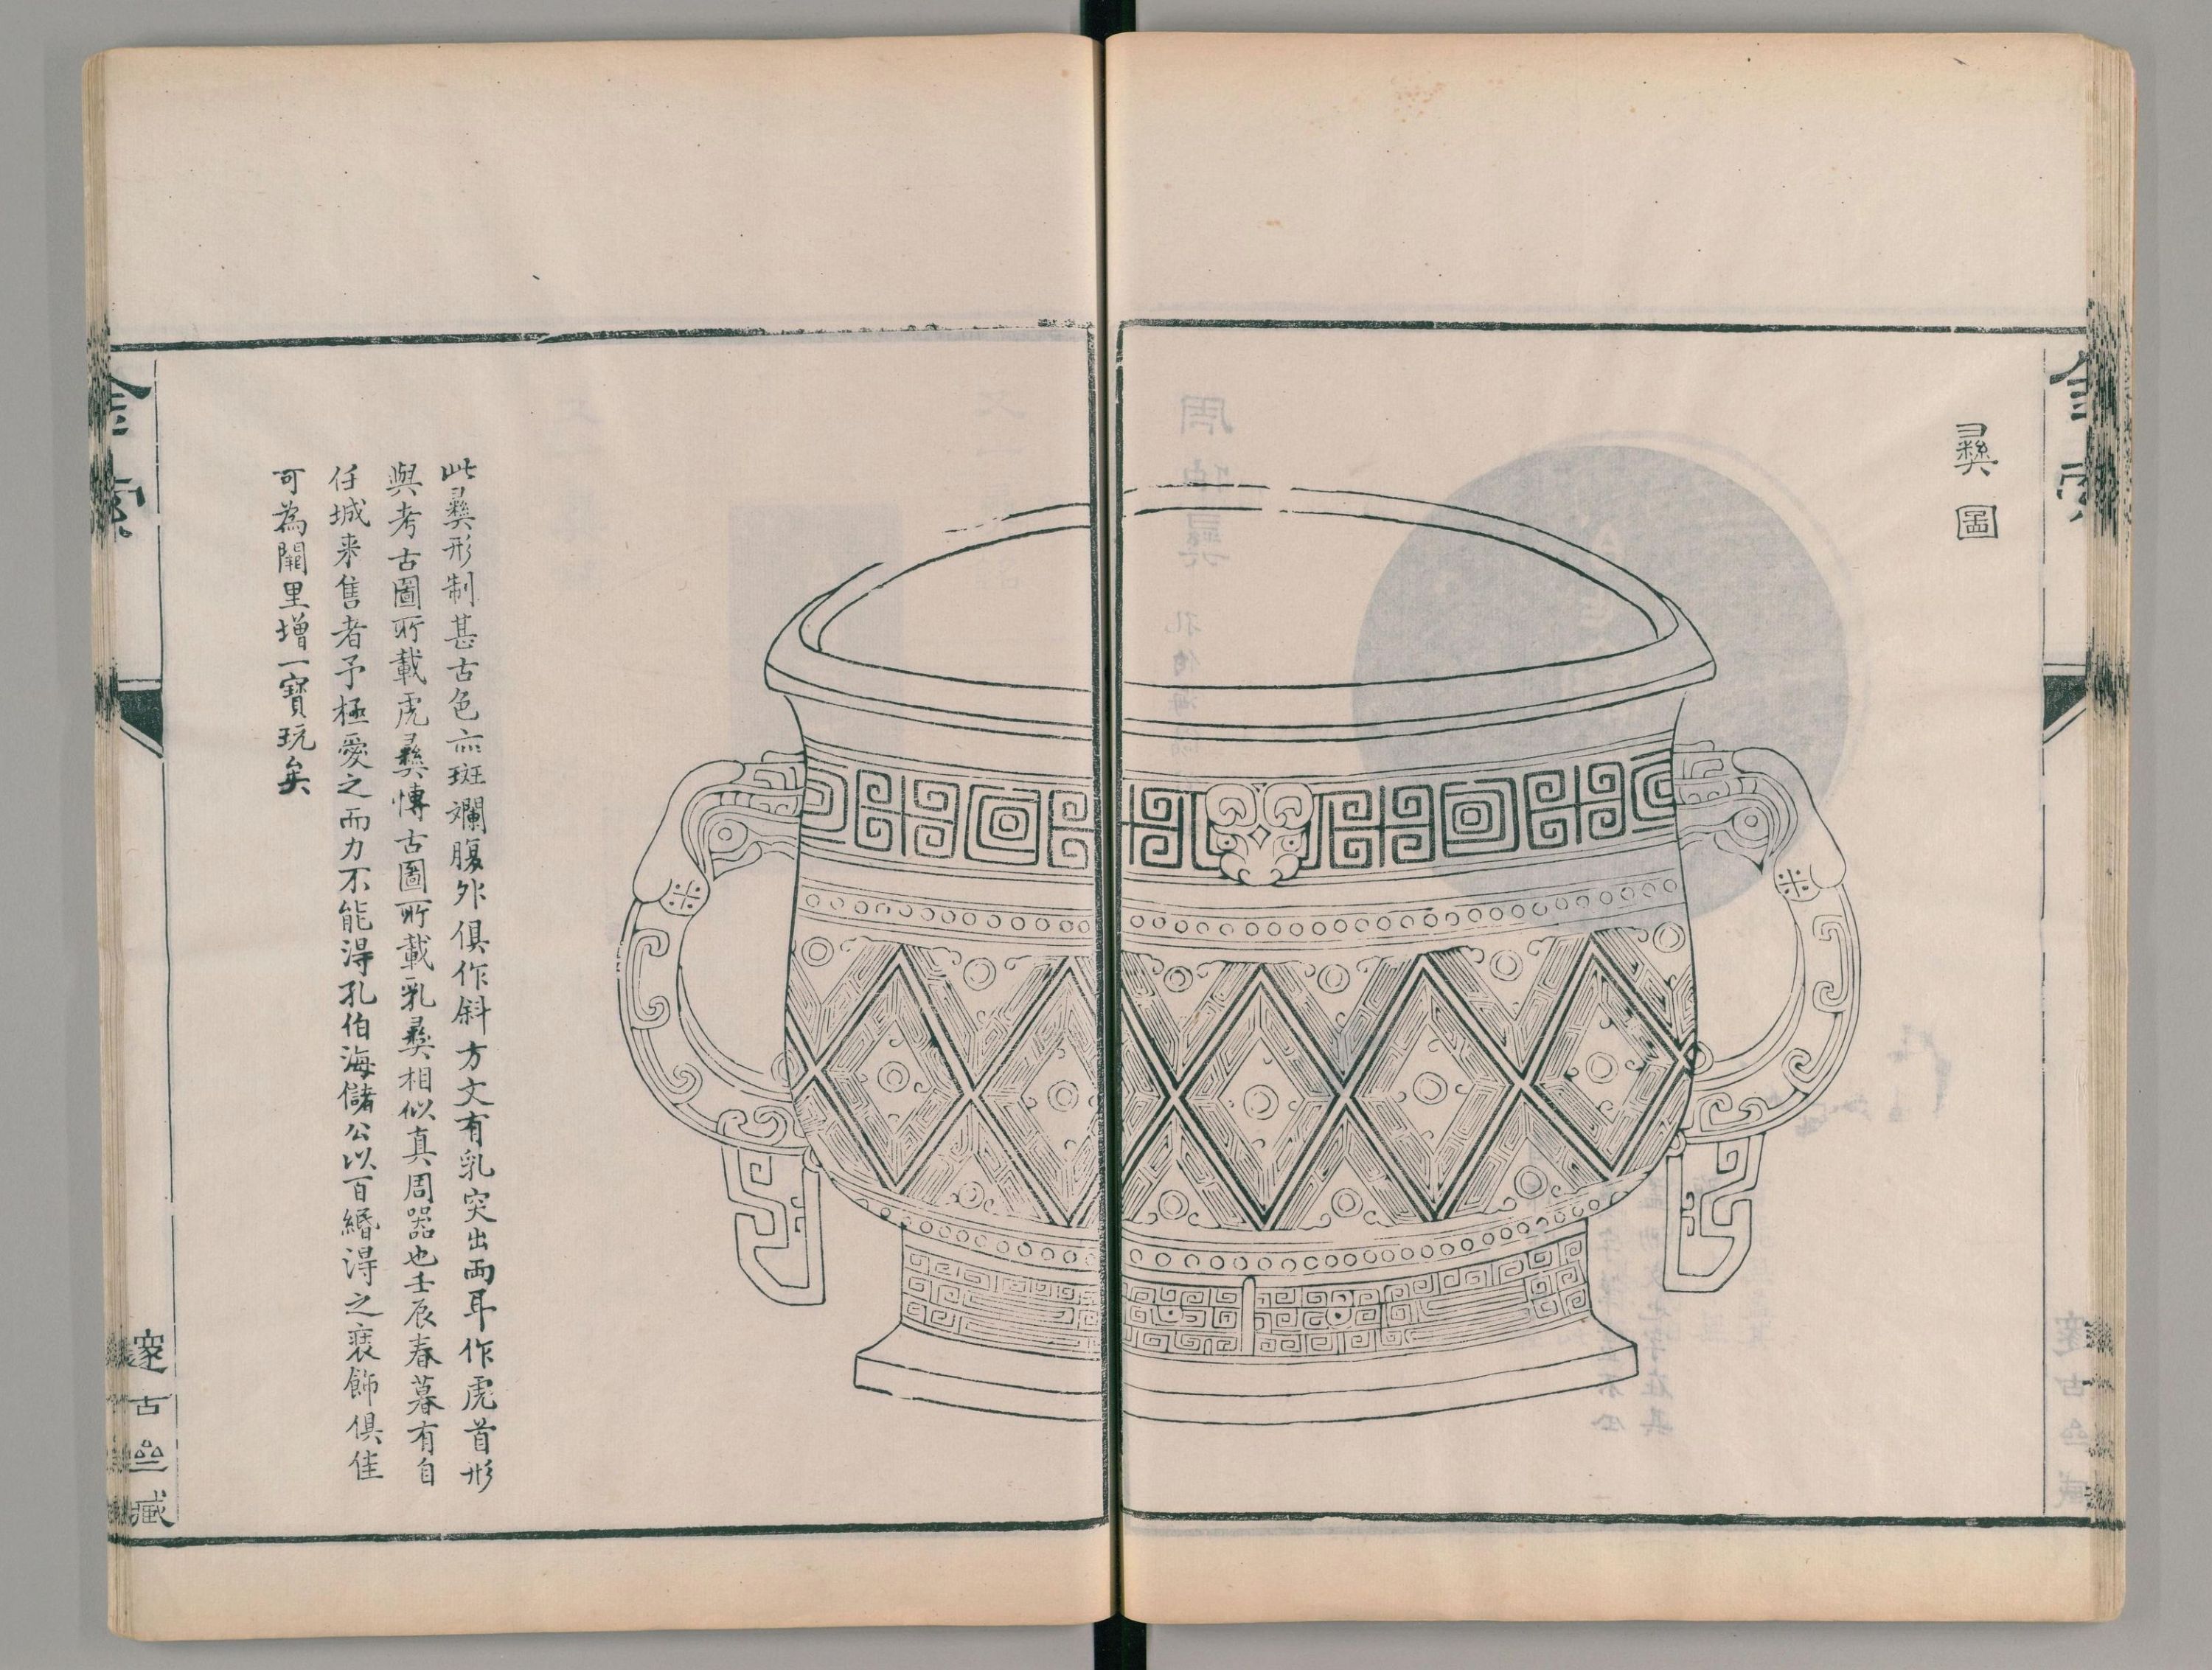 彝圖
此彝形制甚古色亦斑斕腹外俱作斜方文有乳突出兩耳作虎首形
與考古圖所載虎彝博古圖所載乳彝相似真周器也壬辰春暮有自
任城来售者予極愛之而力不能得孔伯海儲公以百緡得之裝飾俱佳
可為闕里增一寶玩矣
金索
邃古亝藏